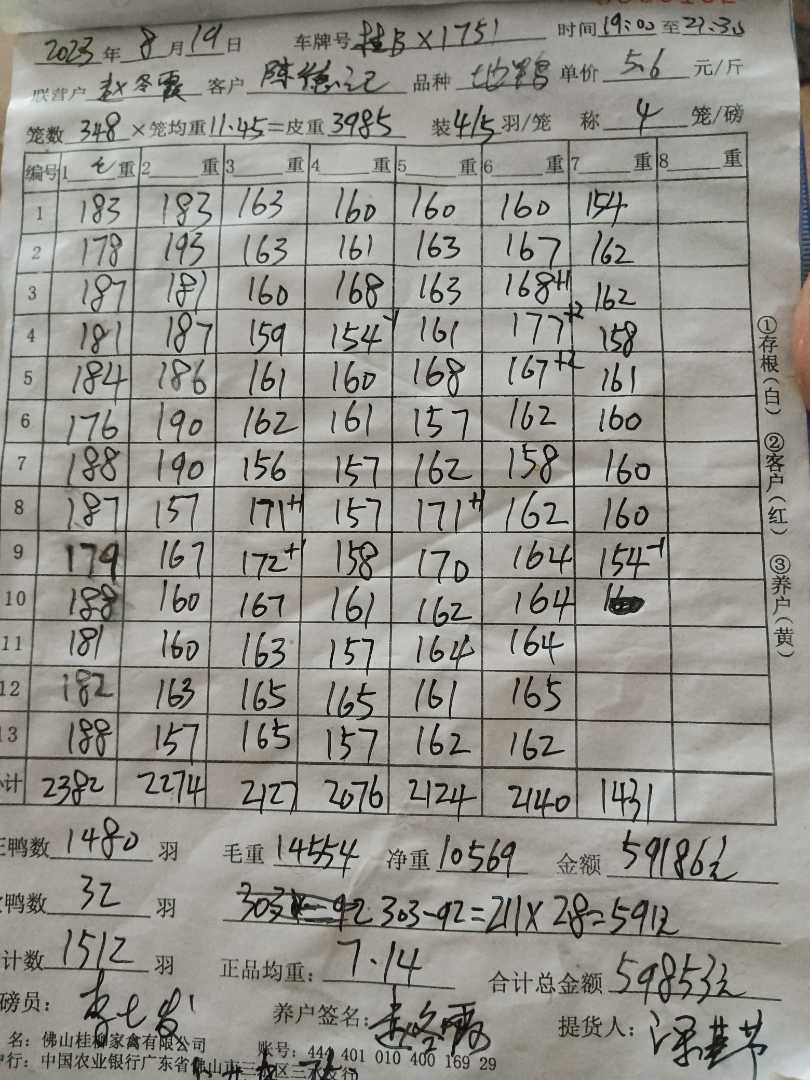 2023 年 8 月 19 日 车牌号 桂B×1751 时间 19:00 至 21:30
联营户 赵冬霞 客户 陈德记 品种 单价 5.6 元/斤
笼数 348 ×笼均重 11.45 =皮重 3985 装 4/5 羽/笼 称 4 笼/磅
编号 1 毛 重 2 重 3 重 4 重 5 重 6 重 7 重 8 重
1 183 183 163 160 160 160 154
2 178 193 163 161 163 167 162
3 187 181 160 168 163 168+1 162
4 181 187 159 154-1 161 177+2 158
5 184 186 161 160 168 167+2 161
6 176 190 162 161 157 162 160
7 188 190 156 157 162 158 160
8 187 157 171+1 157 171+1 162 160
9 179 167 172+1 158 170 164 154-1
10 188 160 167 161 162 164
11 181 160 163 157 164 164
12 182 163 165 165 161 165
13 188 157 165 157 162 162
计 2382 2274 2127 2076 2124 2140 1431
正鸭数 1480 羽 毛重 14554 净重 10569 金额 59186元
鸭数 32 羽 303-92=211×28=591元
计数 1512 羽 正品均重: 7.14 合计总金额 59853元
磅员: 养户签名: 赵冬霞 提货人:
名: 佛山桂柳家禽有限公司 账号: 444 401 010 400 169 29
行: 中国农业银行广东省佛山市三水区三水支行
①存根(白) ②客户(红) ③养户(黄)